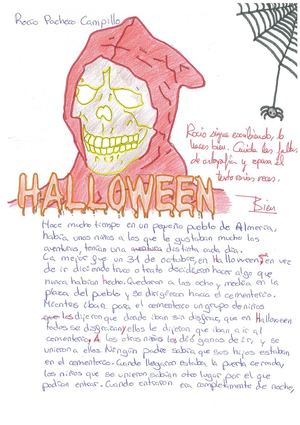 Rocío Pacheco Campillo
Rocío sigue escribiendo, lo
haces bien. Cuida las faltas
de ortografía y repasa el
texto varias veces.
Bien
HALLOWEEN
Hace mucho tiempo en un pequeño pueblo de Almería,
había unos niños a los que le gustaban mucho las
aventuras, tenían una aventura distinta cada día.
La mejor fue un 31 de octubre, en Halloween, en vez
de ir diciendo truco o trato decidieron hacer algo que
nunca habían hecho. Quedaron a las ocho y media en la
plaza del pueblo y se dirigieron hacia el cementerio.
Mientras iban para el cementerio un grupo de niños
que les dijeron que donde iban sin disfraz, que en Halloween
todos se disfrazan y ellos le dijeron que iban a ir al
cementerio. A los otros niños les dió ganas de ir, y se
unieron a ellos. Ningún padre sabía que sus hijos estaban
en el cementerio. Cuando llegaron estaba la puerta cerrada,
los niños que se unieron sabían otro lugar por el que
podrían entrar. Cuando entraron era completamente de noche,